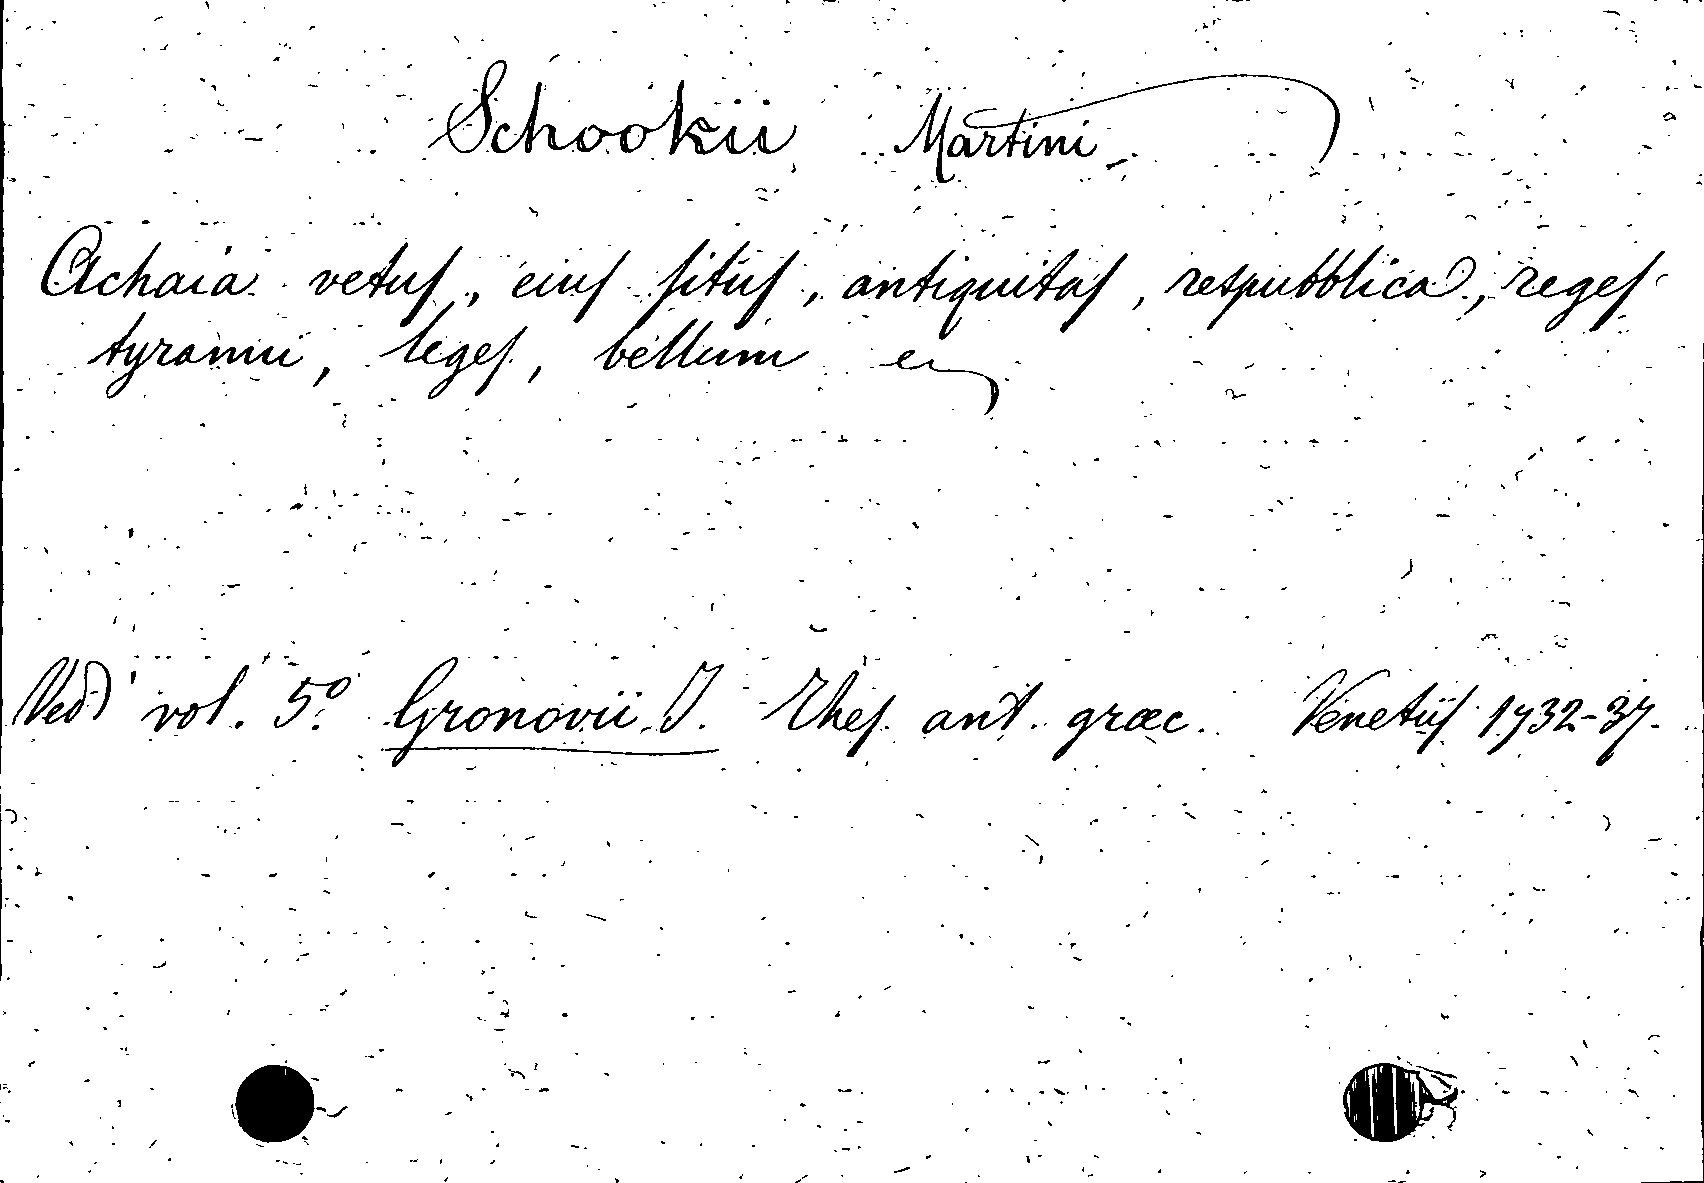 Schookii Martini
Achaia vetus, eius situs, antiquitas, respubblica, reges
tyranni, leges, bellum
Vedi vol. 5º. Gronovii J. Thes. ant. græc. Venetiis 1732-37.